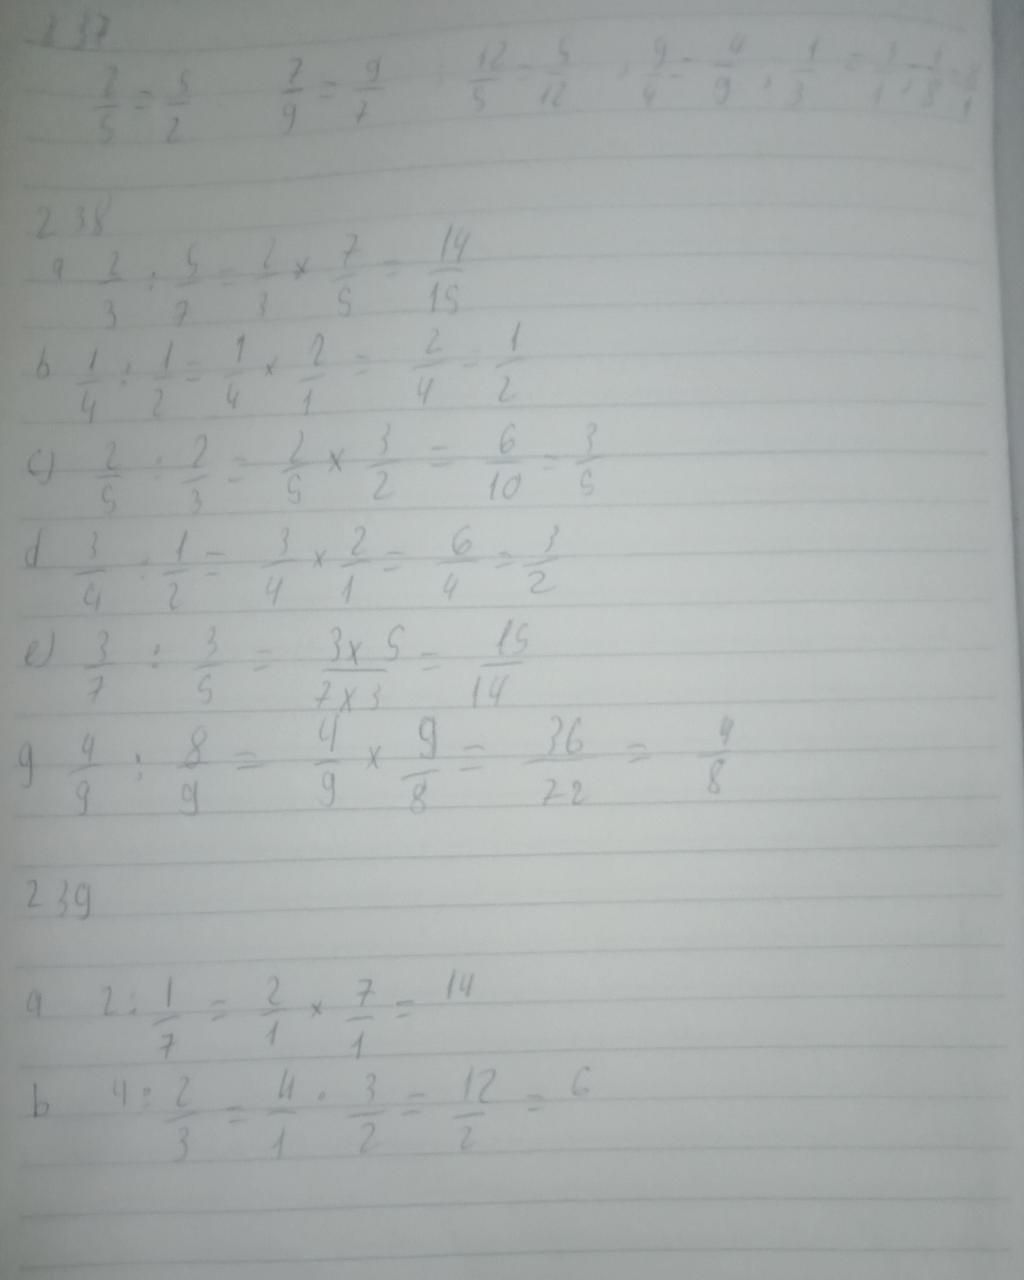 237
2/5 = 5/2 7/9 = 9/7 ; 12/5 = 5/12 , 9/4 = 4/9 , 1/3 =
238
a 2/3 : 5/7 = 2/3 × 7/5 = 14/15
b 1/4 : 1/2 = 1/4 × 2/1 = 2/4 = 1/2
c) 2/5 : 2/3 = 2/5 × 3/2 = 6/10 = 3/5
d 3/4 : 1/2 = 3/4 × 2/1 = 6/4 = 3/2
e) 3/7 : 3/5 = 3×5/7×3 = 15/14
g 4/9 : 8/9 = 4/9 × 9/8 = 36/72 = 4/8
239
a 2 : 1/7 = 2/1 × 7/1 = 14
b 4 : 2/3 = 4/1 · 3/2 = 12/2 = 6